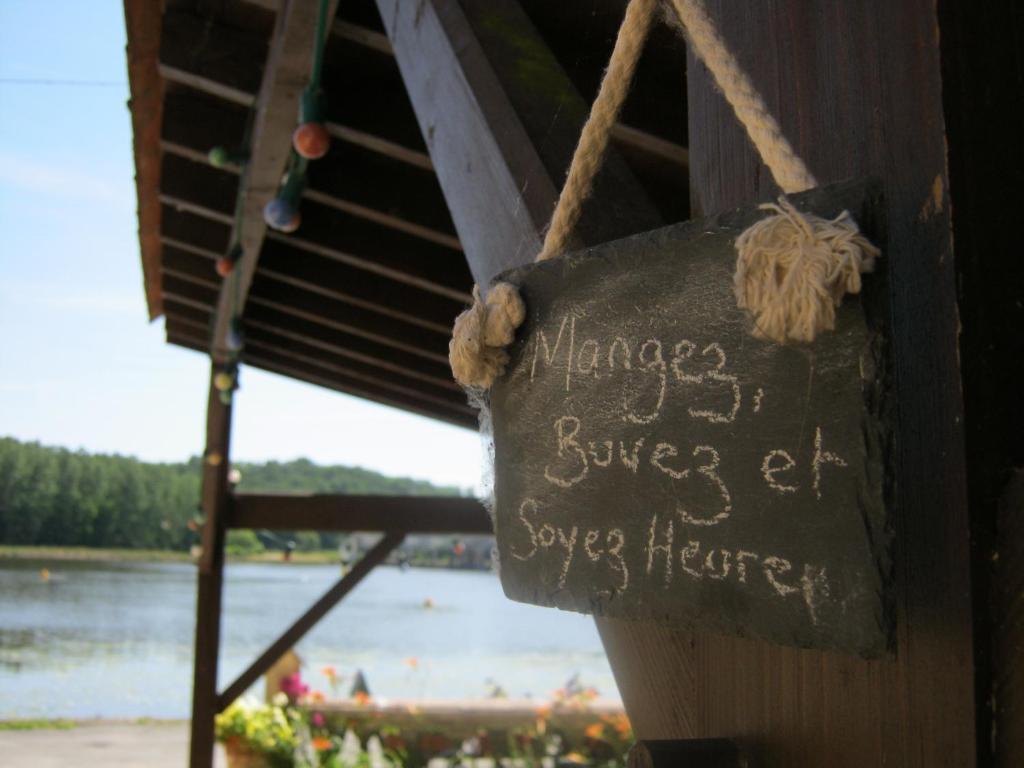 Mangez,
Buvez et
Soyez Heurex